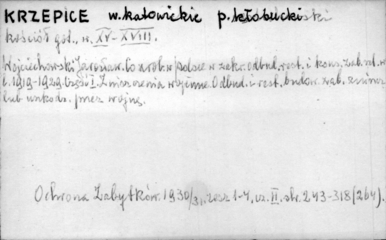 KRZEPICE w. katowickie p. kłobucki
kościół got., w. XV-XVIII.
Wojciechowski Jarosław. Co zrob. w Polsce w zakr. odbud., rest. i kons. zab. od. w
l. 1919-1929. Część I. Zniszczenia wojenne. Odbud. i rest. budow. zab. zniszcz.
lub uszkodz. przez wojnę.
Ochrona Zabytków. 1930/31, zesz. 1-4, cz. II, str. 243-318 (264).